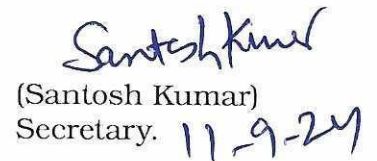 Santosh Kumar
(Santosh Kumar)
Secretary. 11-9-24